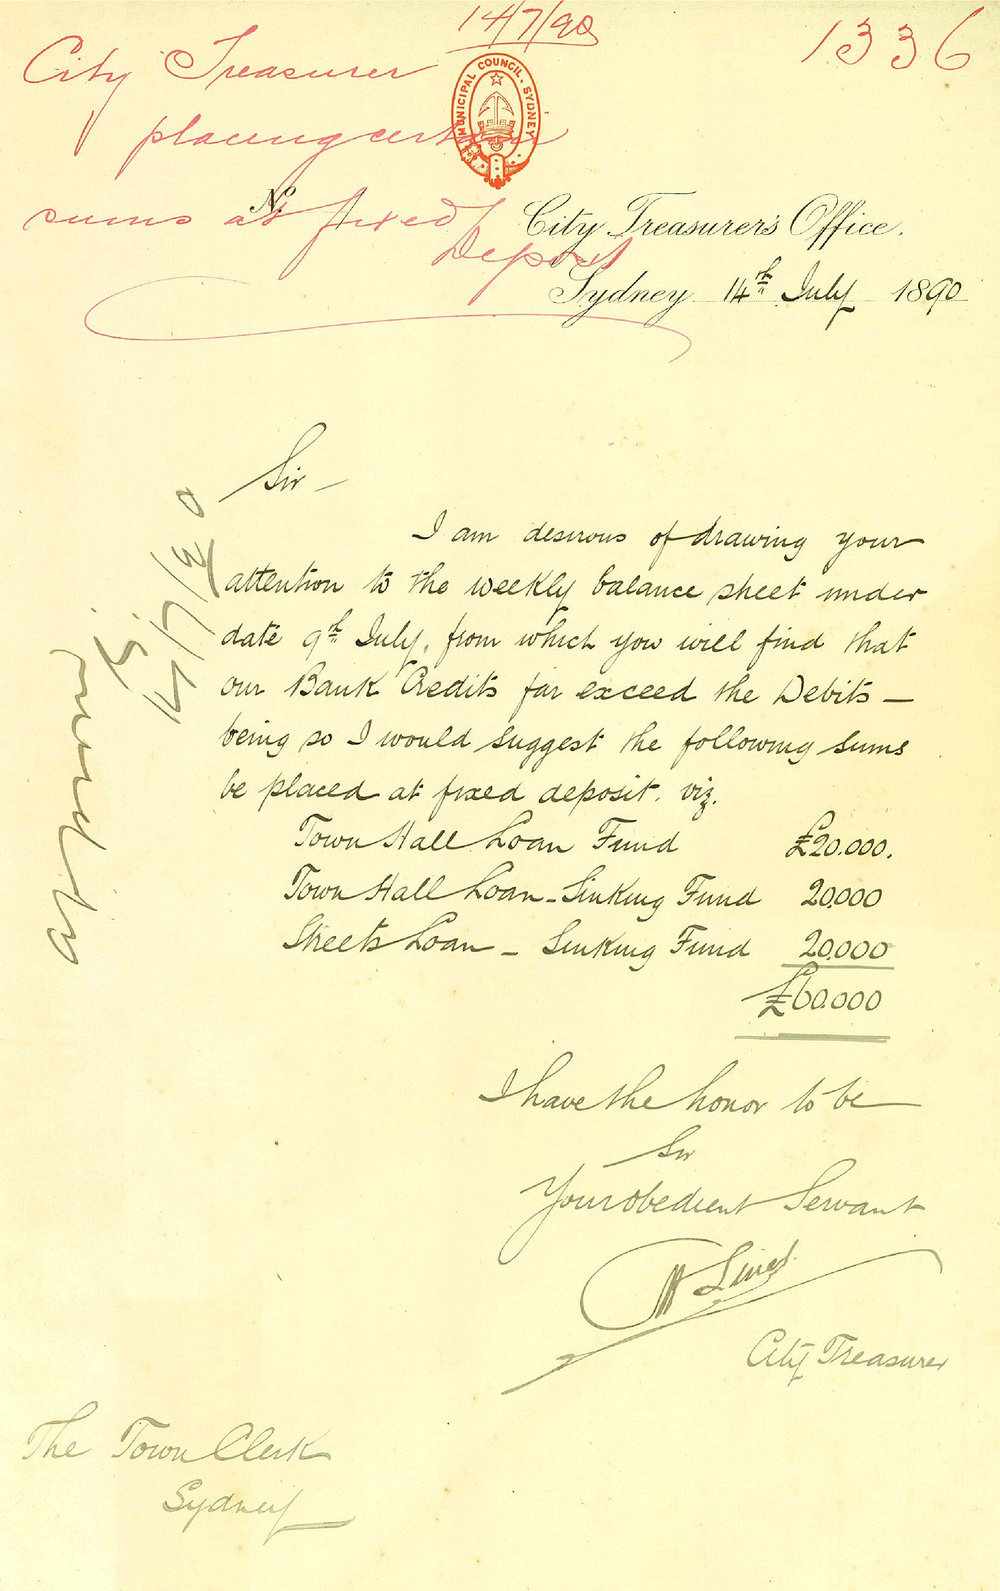 14/7/90
1336
City Treasurer
placing certain
sums at fixed
Deposit
MUNICIPAL COUNCIL. SYDNEY
No.
City Treasurer's Office.
Sydney 14th July 1890
Sir –
I am desirous of drawing your
attention to the weekly balance sheet under
date 9th July, from which you will find that
our Bank Credits far exceed the Debits –
being so I would suggest the following sums
be placed at fixed deposit. viz.
Town Hall Loan Fund £20.000.
Town Hall Loan – Sinking Fund 20.000
Streets Loan – Sinking Fund 20.000
£60.000
I have the honor to be
Sir
Your obedient Servant
City Treasurer
The Town Clerk
Sydney